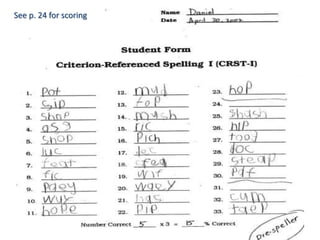 See p. 24 for scoring
Name Daniel
Date April 30, 2002
Student Form
Criterion-Referenced Spelling I (CRST-I)
1. pot
2. sip
3. shop
4. asg
5. shop
6. luc
7. feat
8. fic
9. paey
10. wux
11. hope
12. mud
13. top
14. mush
15. ric
16. pich
17. lec
18. fea
19. wit
20. waey
21. has
22. pip
23. hop
24.
25. shash
26. hip
27. toof
28. loc
29. steap
30. paf
31.
32. cum
33. taep
Number Correct 5 x 3 = 15 % Correct
pre-speller